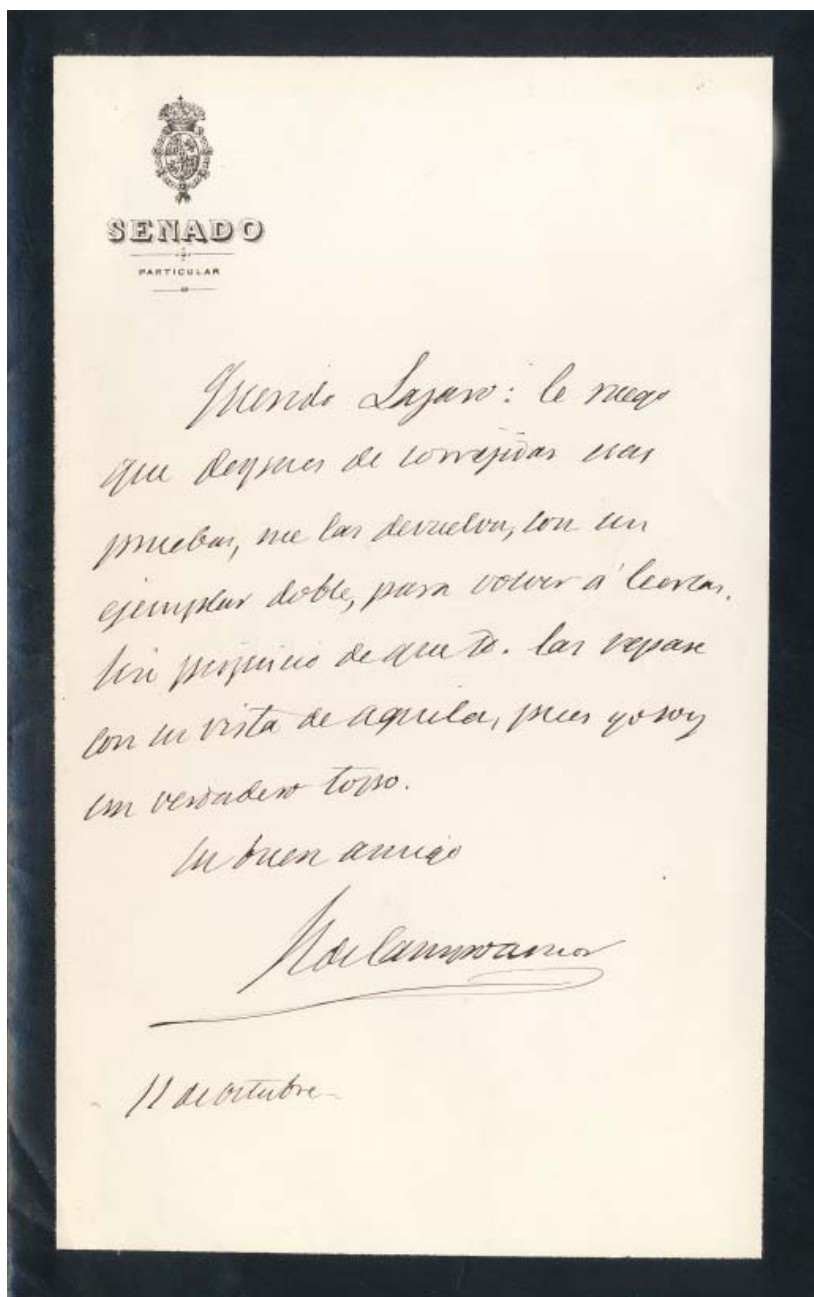 SENADO
PARTICULAR
Querido Lazaro: le ruego
que despues de correjidas esas
pruebas, me las devuelva, con un
ejemplar doble, para volver á leerlas.
Sin perjuicio de que V. las repase
con su vista de aguila, pues yo soy
un verdadero topo.
Su buen amigo
R de Campoamor
11 de octubre